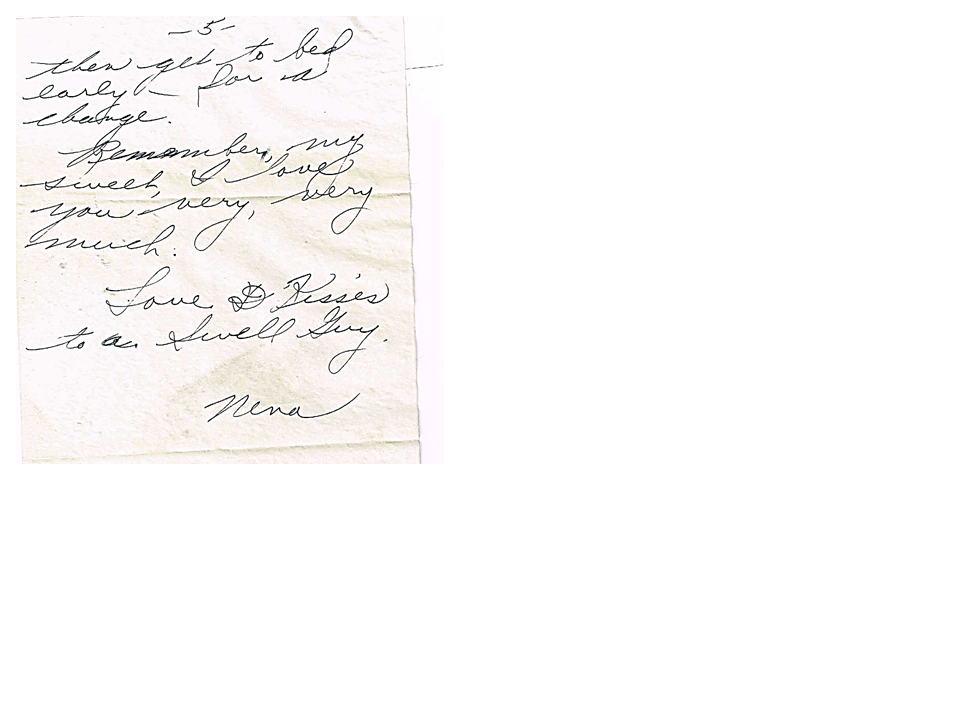 -5-
then get to bed
early - for a
change.
Remember, my
sweet, I love
you very, very
much.
Love & Kisses
to a Swell Guy.
Nena